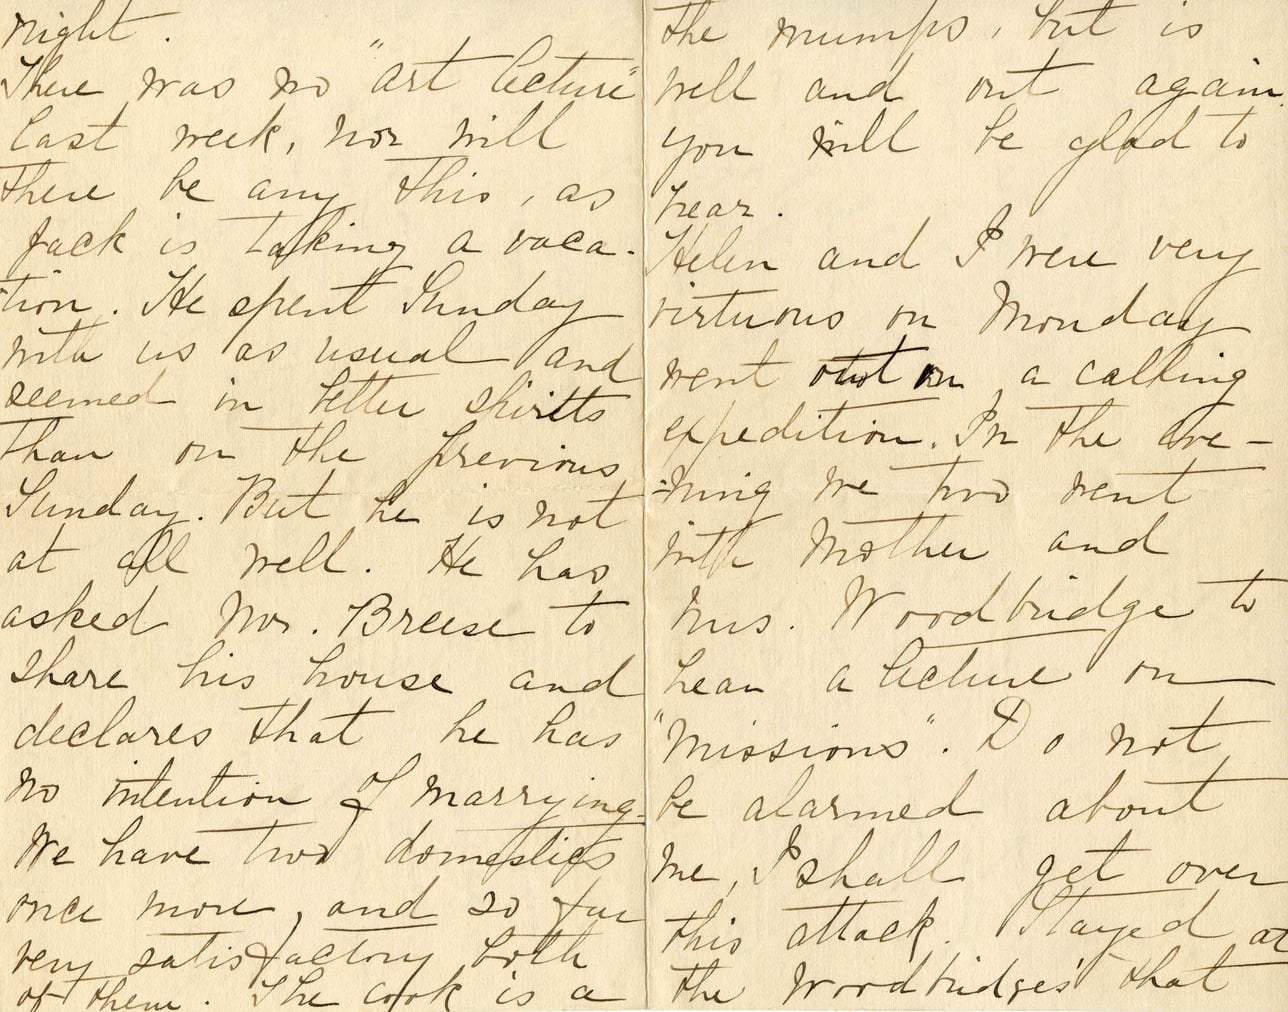 night.
There was no "Art Lecture"
last week, nor will
there be any this, as
Jack is taking a vaca-
-tion. He spent Sunday
with us as usual and
seemed in better spirits
than on the previous
Sunday. But he is not
at all well. He has
asked Mr. Breese to
share his house and
declares that he has
no intention of marrying.
We have two domestics
once more, and so far
very satisfactory both
of them. The cook is a
the mumps, but is
well and out again
you will be glad to
hear.
Helen and I were very
virtuous on Monday
went out on a calling
expedition. In the eve-
-ning we two went
with Mother and
Mrs. Woodbridge to
hear a lecture on
"Missions". Do not
be alarmed about
me, I shall get over
this attack. Stayed at
the Woodbridges' that